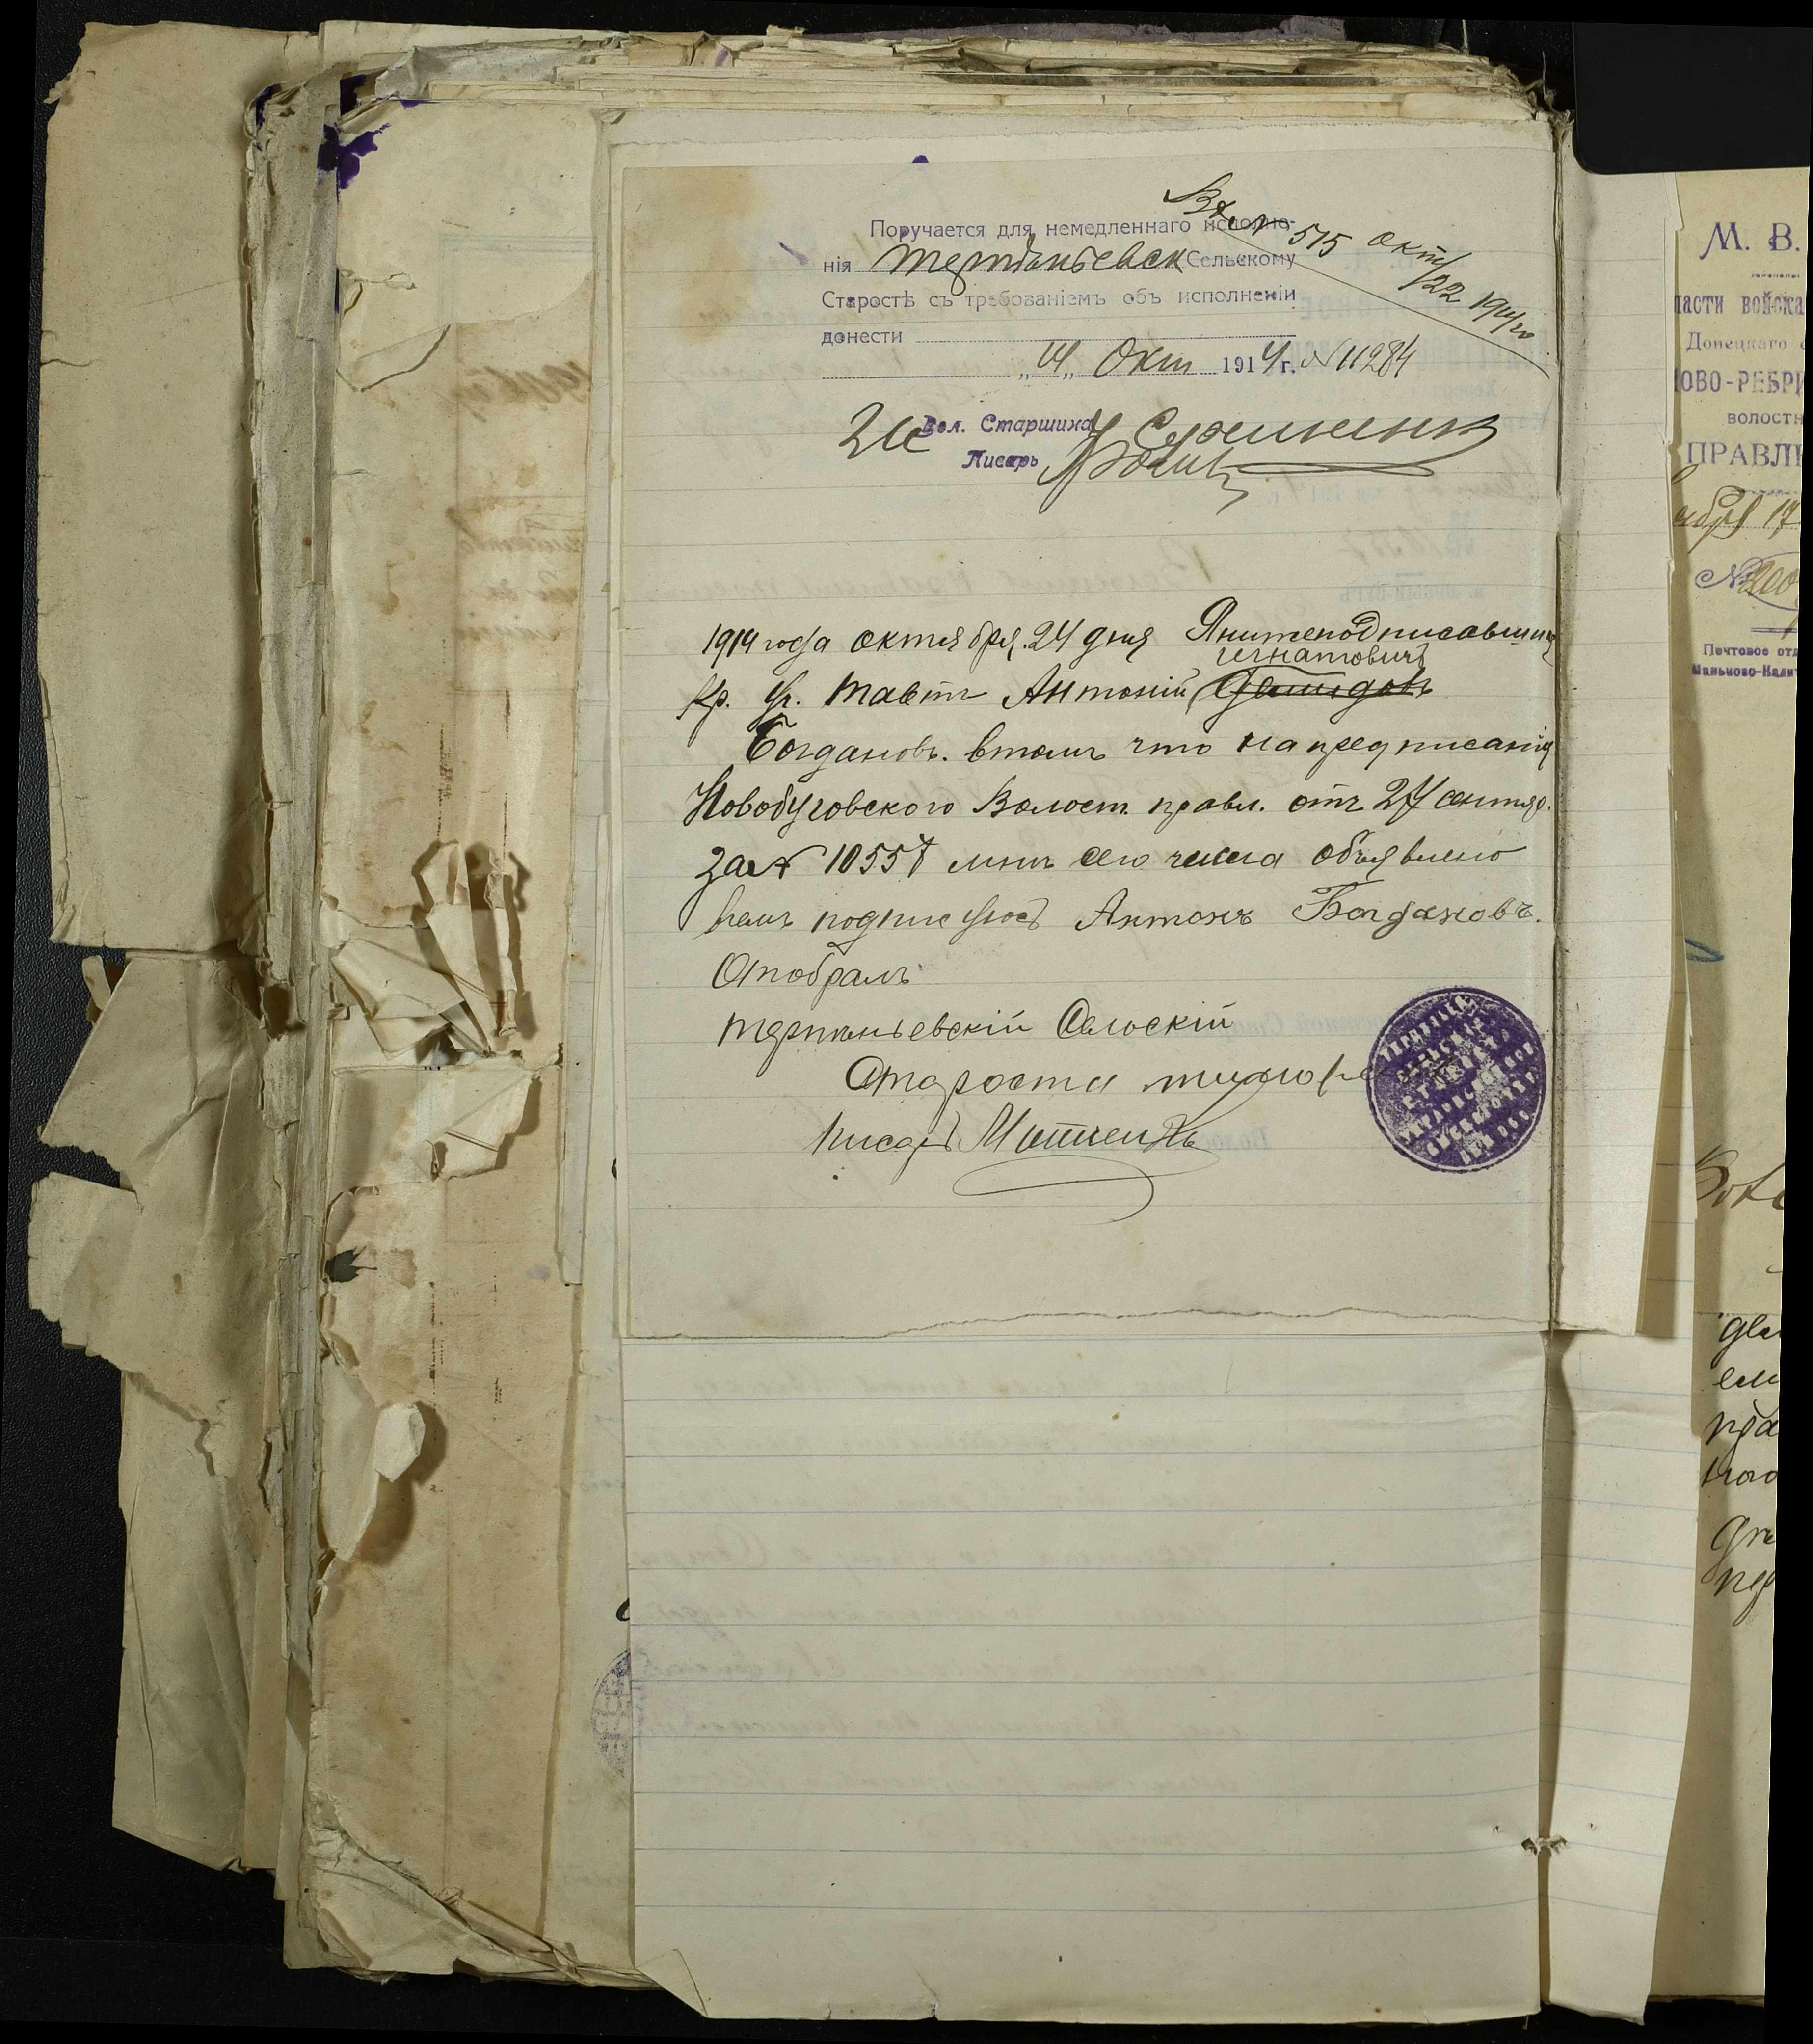 Вх. № 515 окт/22 1914 го
Поручается для немедленнаго исполне-
нія Терпѣньевск Сельскому
Старостѣ съ требованіемъ объ исполненіи
донести
„14„ Окт 1914 г. № 11284
За Вол. Старшина
Писарь
1914 года октября 24 дня Я нижеподписавшийся
Игнатовичъ
Кр. Гр. Тавт Антоній
Богдановъ. втомъ что на предписанія
Новобуговского Волост. правл. от 27 сентяб.
за № 10557 мнѣ сего числа объявлено
вчемъ подписуюсь Антонъ Богдановъ.
Отобралъ
терпѣньевскій Сельскій
Староста
писарь
М. В.
ласти войска
Донецкаго о
ОВО-РЕБРИ
волостн
ПРАВЛЕ
ября 17
№
Почтовое отд
Маньково-Калит